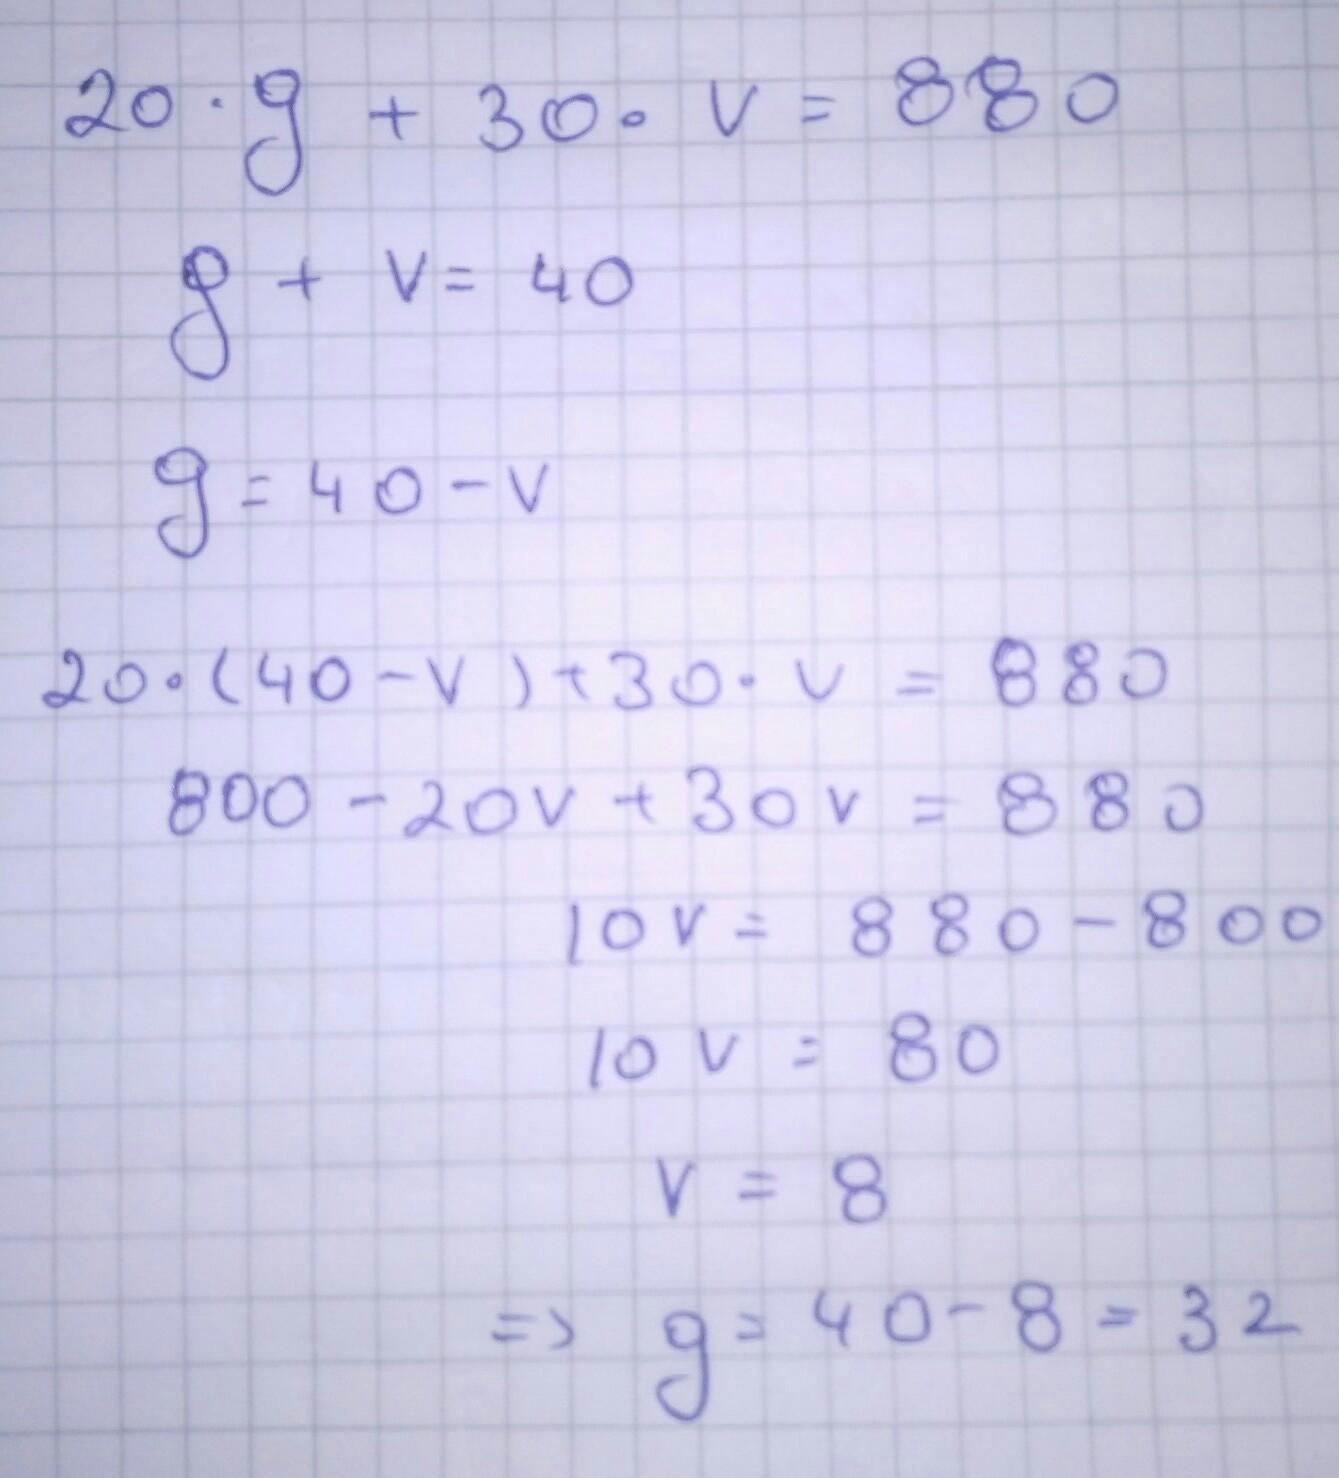 20 · g + 30 · v = 880
g + v = 40
g = 40 - v
20 · (40 - v) + 30 · v = 880
800 - 20v + 30v = 880
10v = 880 - 800
10v = 80
v = 8
=> g = 40 - 8 = 32